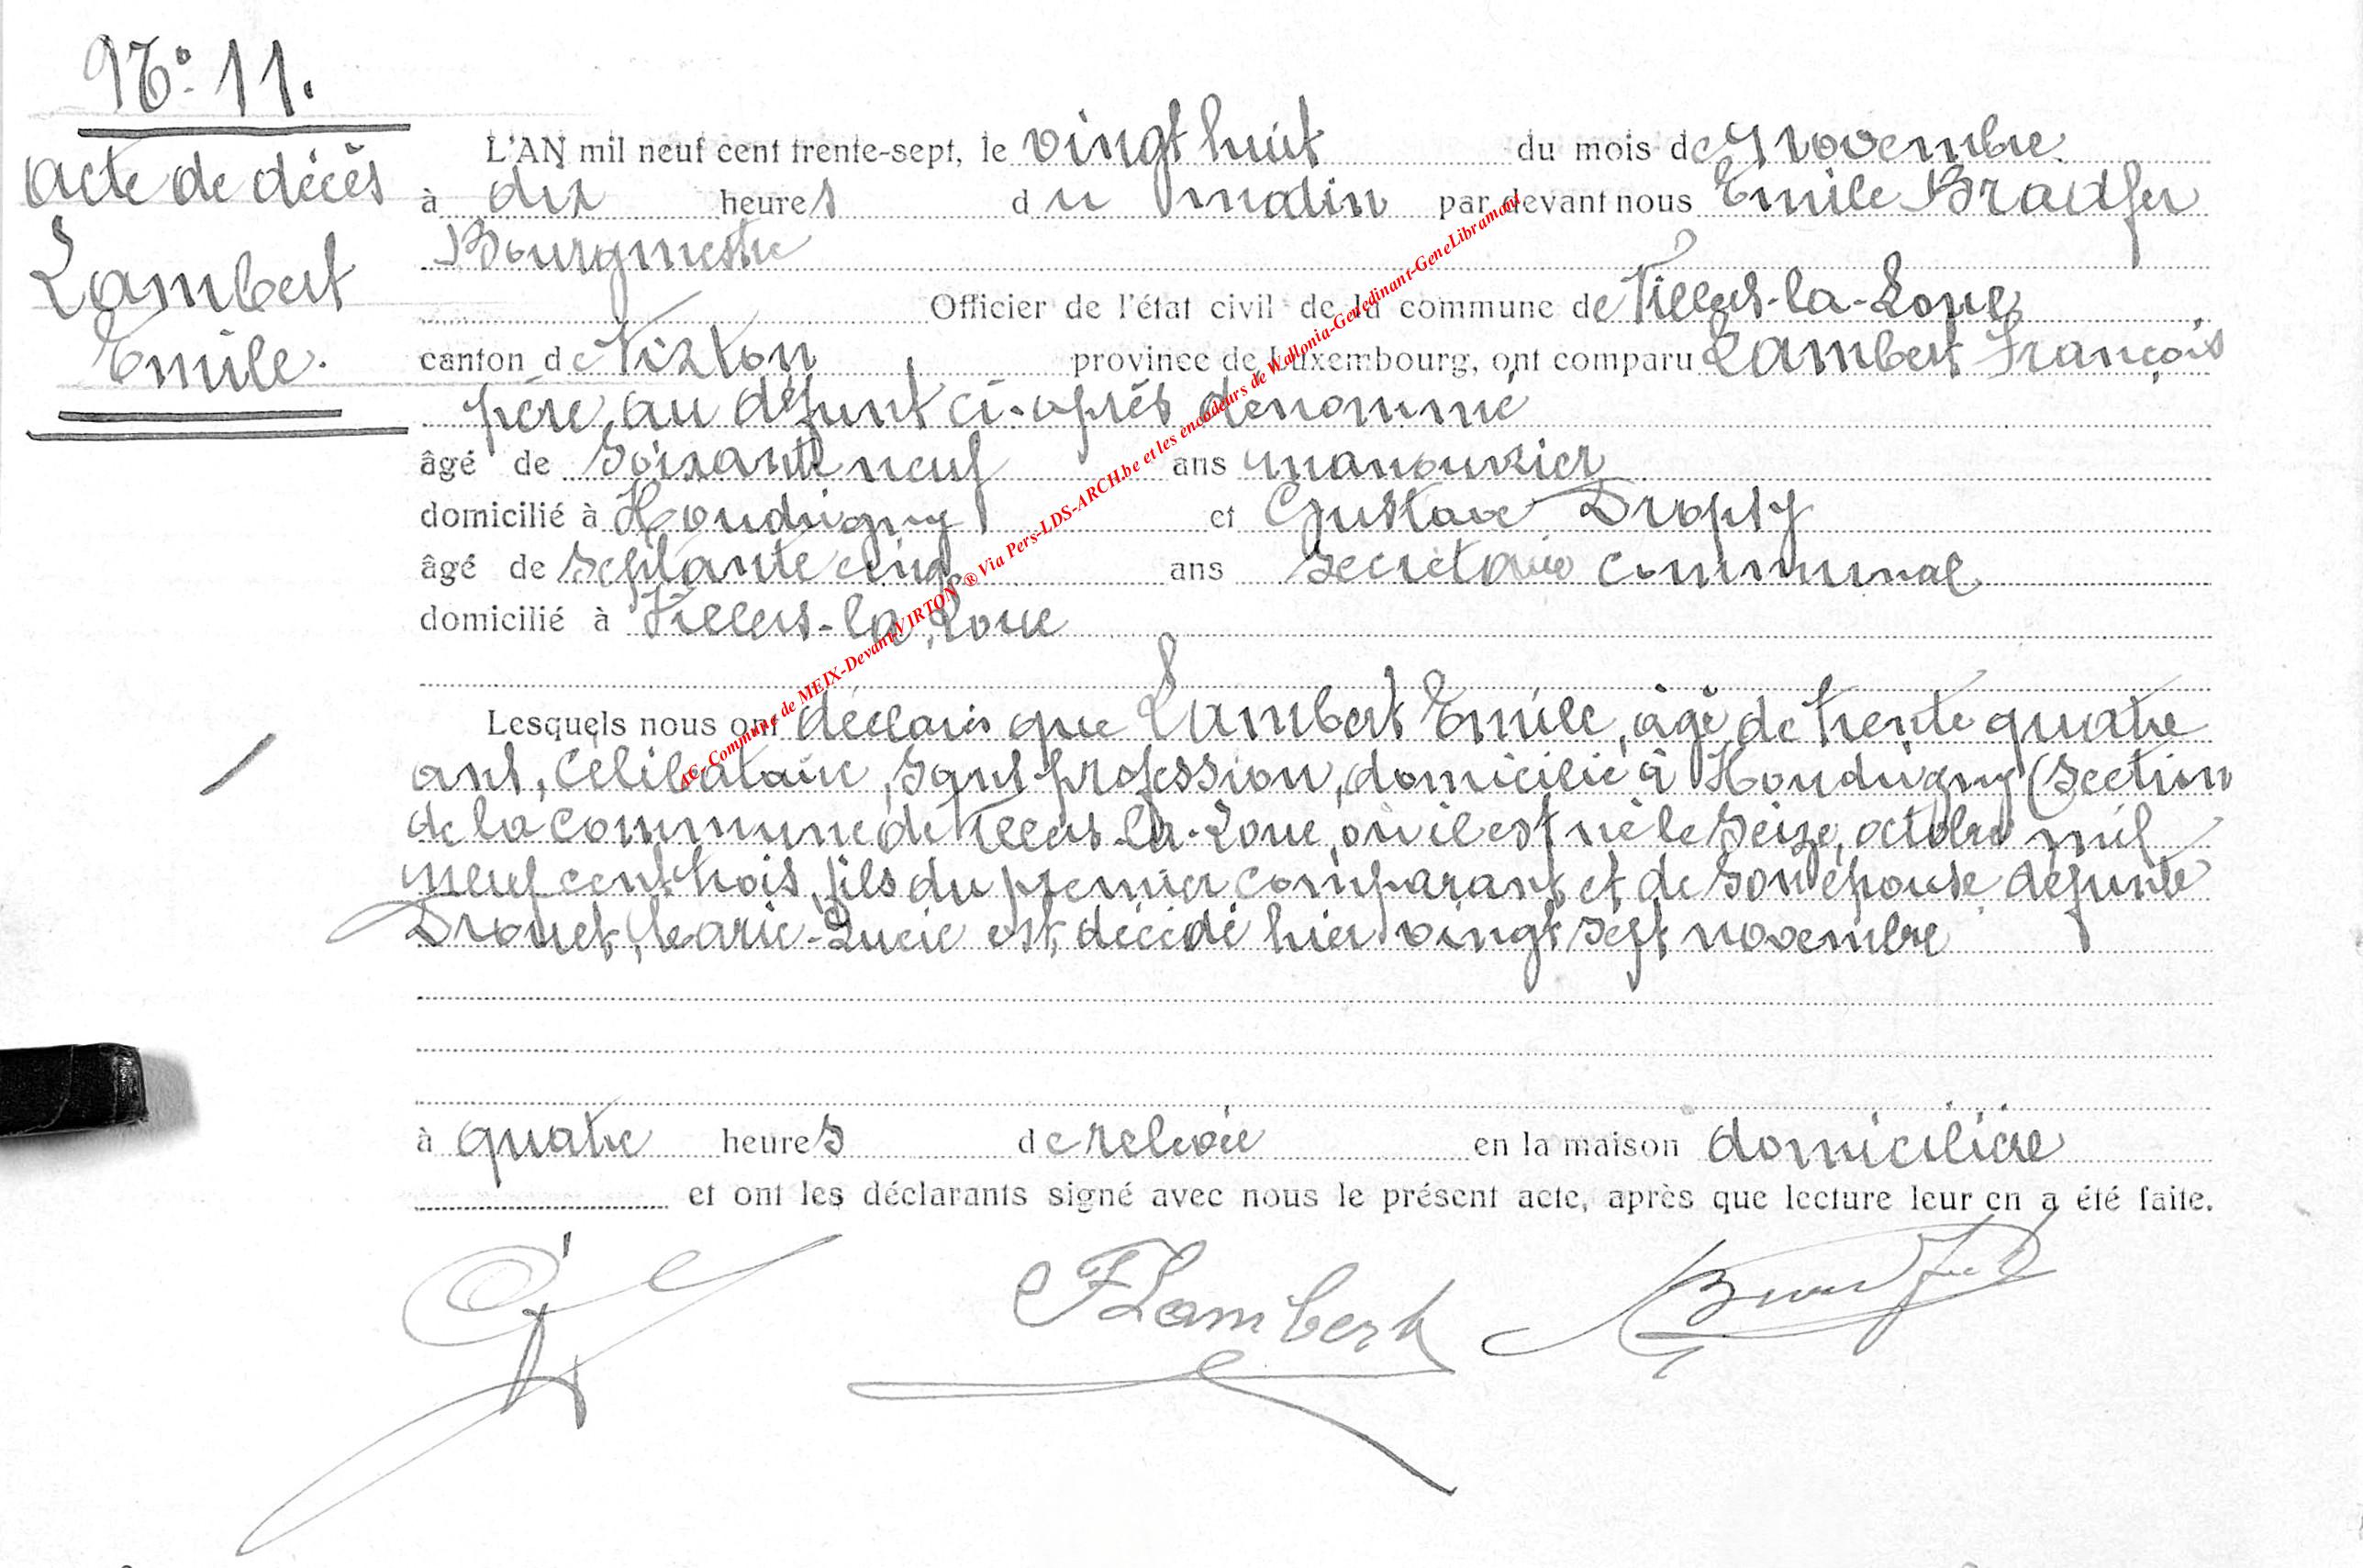 N° 11.
Acte de décès
Lambert
Emile.
L'AN mil neuf cent trente-sept, le vingt huit du mois de Novembre
à dix heures du matin par devant nous Emile Bradfer
Bourgmestre
Officier de l'état civil de la commune de Villers-la-Loue,
canton de Virton province de Luxembourg, ont comparu Lambert François
père au défunt ci-après dénommé
âgé de soixante neuf ans manouvrier
domicilié à Houdrigny et Gustave Dropsy
âgé de septante cinq ans secrétaire communal
domicilié à Villers-la-Loue
Lesquels nous ont déclaré que Lambert Emile, âgé de trente quatre
ans, célibataire, sans profession, domicilié à Houdrigny (section
de la commune de Villers-la-Loue, où il est né le seize octobre mil
neuf cent trois, fils du premier comparant et de son épouse défunte
Drouet, Marie-Lucie est décédé hier vingt sept novembre
à quatre heures de relevée en la maison domiciliére
et ont les déclarants signé avec nous le présent acte, après que lecture leur en a été faite.
FLambert
Bradfer
AC-Commune de MEIX-Devant-VIRTON ® Via Pers-LDS-ARCH.be et les encodeurs de Wallonia-Genedinant-GeneLibramont